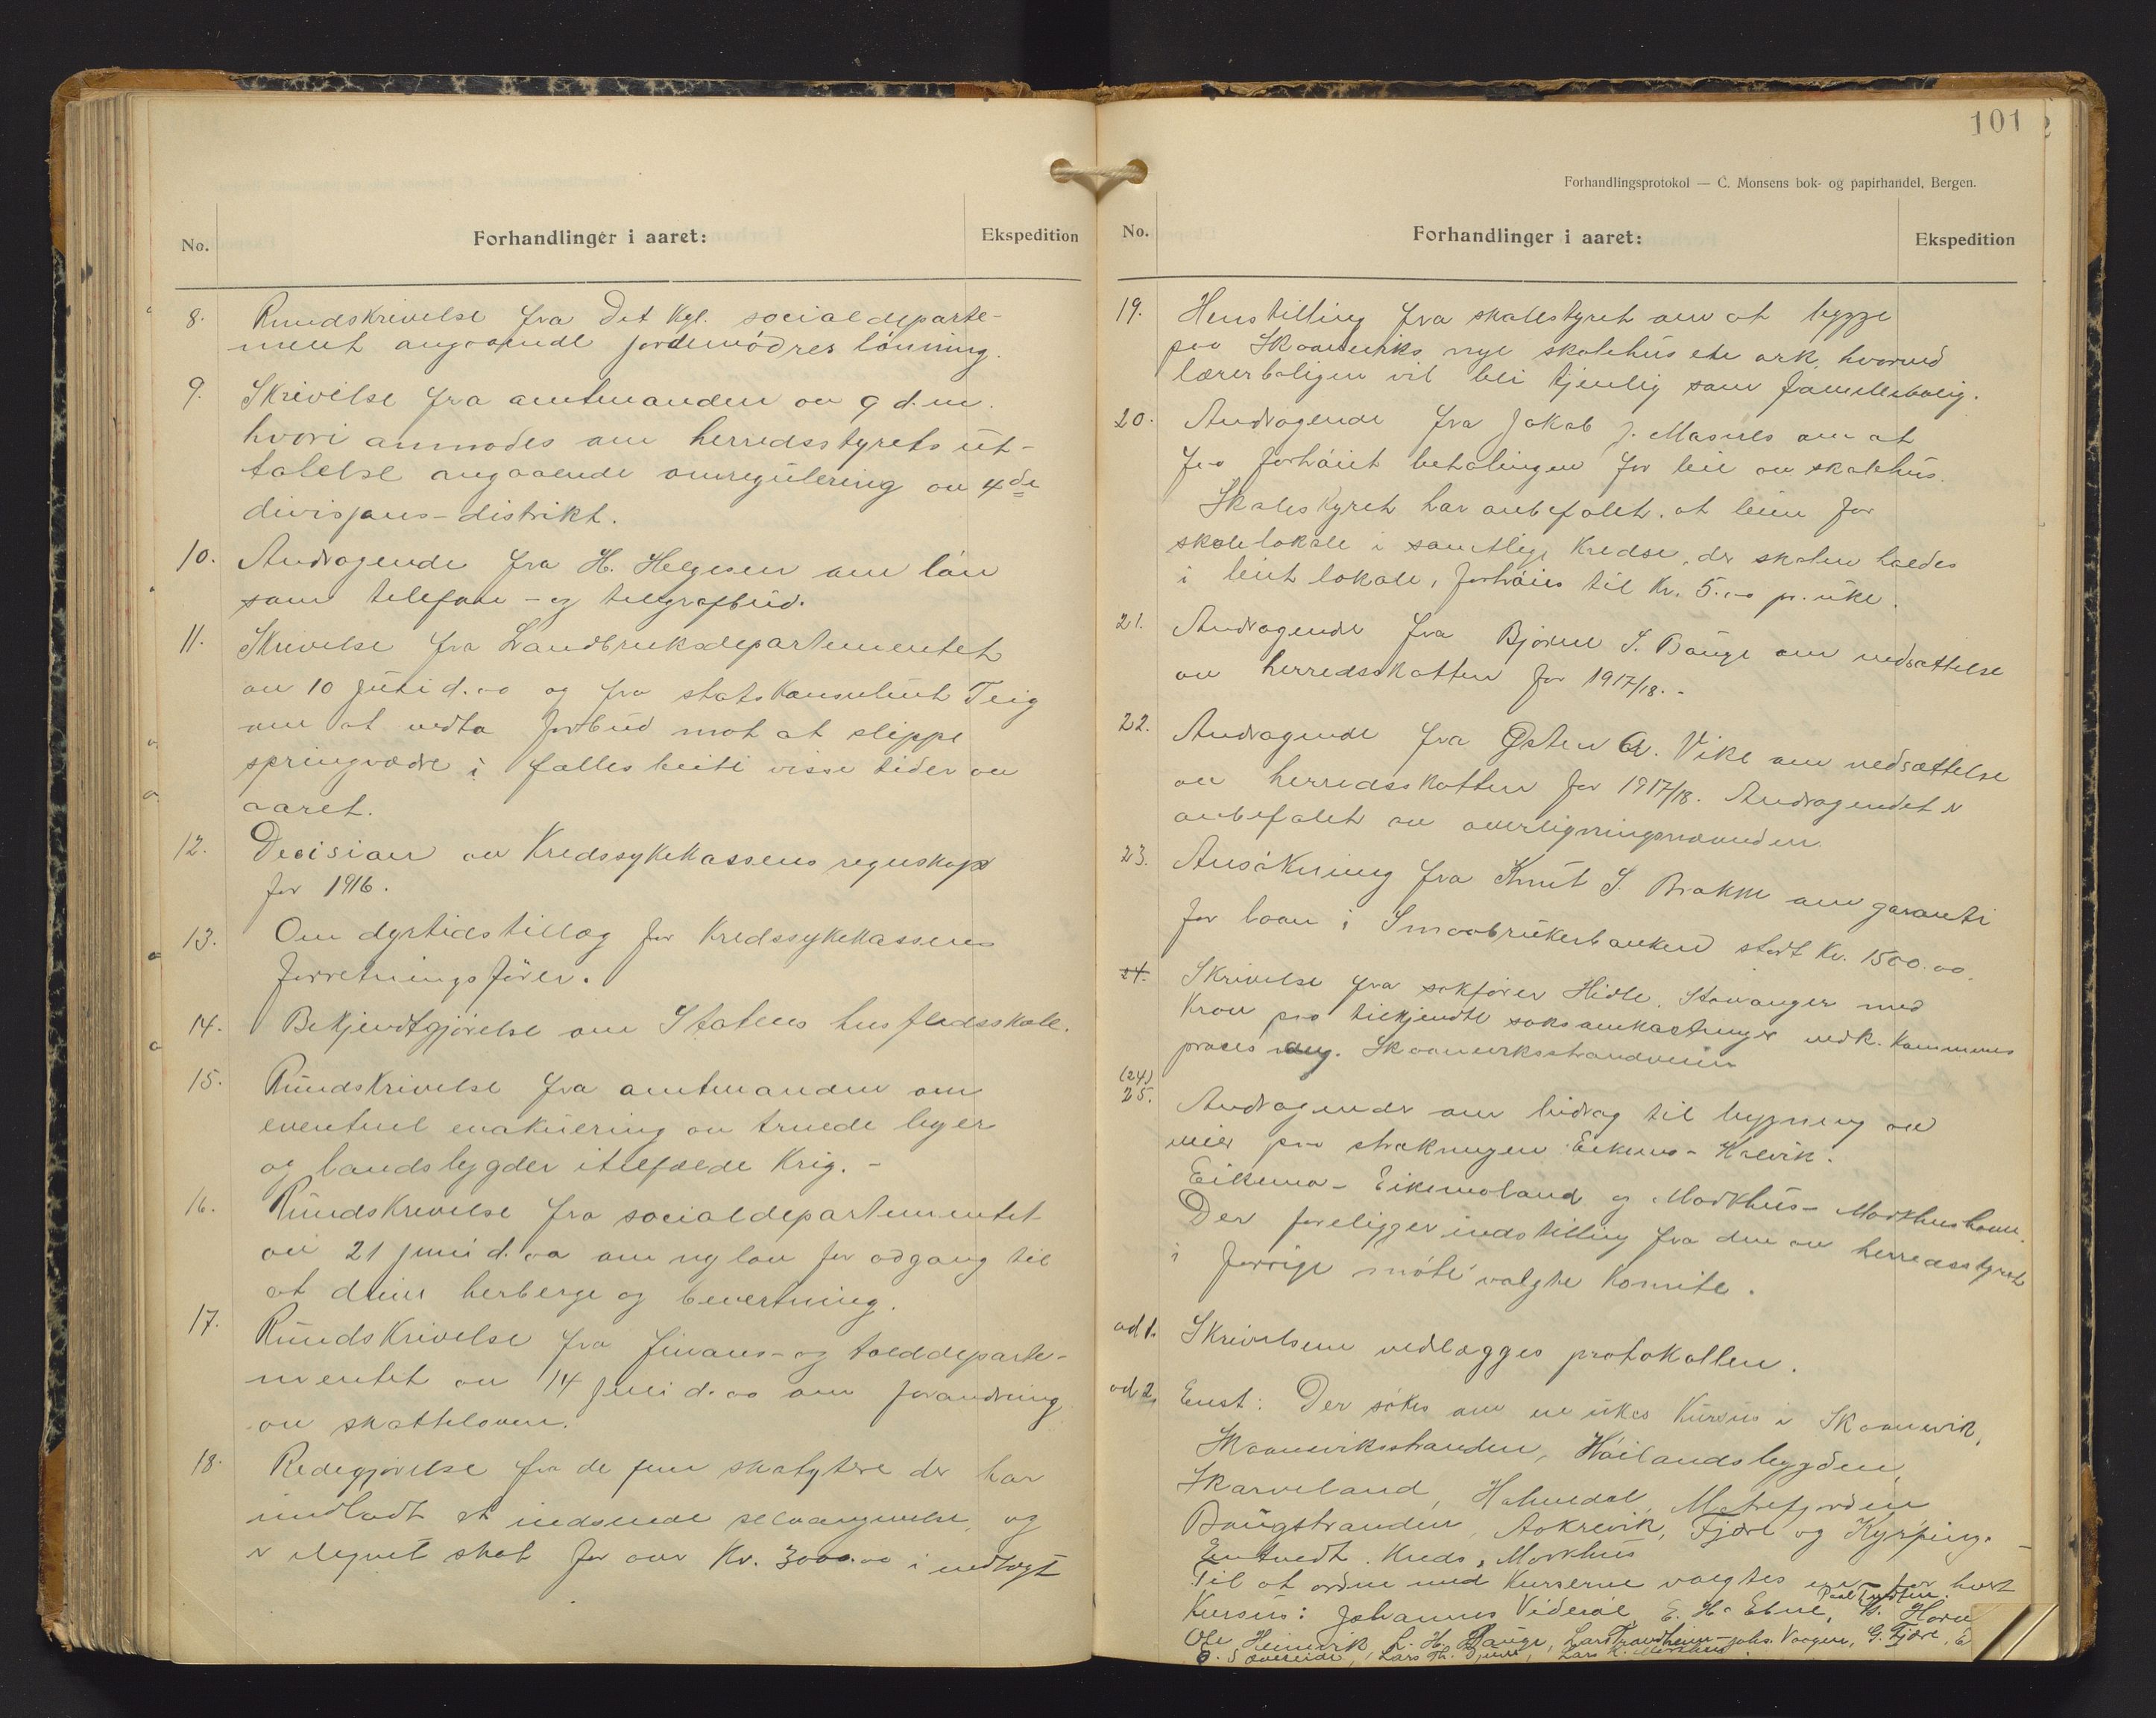 No.
Forhandlinger i aaret:
Ekspedition
8. Rundskrivelse fra Det kgl. socialdeparte-
ment angaaende jordemødres lønning.
9. Skrivelse fra amtmanden av 9 d.m.
hvori anmodes om herredsstyrets ut-
talelse angaaende omregulering av 4de
divisjons-distrikt.
10. Andragende fra H. Helgesen om løn
som telefon- og telegrafbud.
11. Skrivelse fra Landbruksdepartementet
av 10 juli d.aa og fra statskonsulent Teig
om at vedta forbud mot at slippe
springvædre i fælles beite visse tider av
aaret.
12. Decision av Kredssykekassens regnskap
for 1916.
13. Om dyrtidstillæg for Kredssykekassens
forretningsfører.
14. Bekjendtgjørelse om Statens husflidsskole.
15. Rundskrivelse fra amtmanden om
eventuel evakuering av truede byer
og landsbygder itilfælde Krig. -
16. Rundskrivelse fra socialdepartementet
av 21 juni d.aa om ny lov for adgang til
at drive herberge og bevertning.
17. Rundskrivelse fra finans- og tolddeparte-
mentet av 14 juni d.aa om forandring
av skatteloven.
18. Redegjørelse fra de fem skatytere der har
undladt at indsende selvangivelse, og
er ilignet skat for over Kr. 3000.00 i indtægt
101
Forhandlingsprotokol — C. Monsens bok- og papirhandel, Bergen.
No.
Forhandlinger i aaret:
Ekspedition
19. Henstilling fra skolestyret om at bygge
paa Skaaneviks nye skolehus ete ark, hvorved
lærerboligen vil bli tjenlig som familiebolig.
20. Andragende fra Jakob J. Masnes om at
faa forhøiet betalingen for leie av skolehus.
Skolestyret har anbefalet, at leien for
skolelokale i samtlige Kredse, der skolen holdes
i leiet lokale, forhøies til Kr. 5.00 pr. uke.
21. Andragende fra Bjørne S. Bauge om nedsættelse
av herredsskatten for 1917/18. -
22. Andragende fra Østen A. Vike om nedsættelse
av herredsskatten for 1917/18. Andragendet er
anbefalet av overligningsnævnden.
23. Ansøkning fra Knut S. Brakke om garanti
for laan i Smaabrukerbanken stort Kr. 1500.00.
24. Skrivelse fra sakfører Hidle, Stavanger med
Krav paa tilkjendte saksomkostninger vedk. Kommunens
proces ang. Skaaneviksstrandveien
(24)
25. Andragende om bidrag til bygning av
veier paa strækningen Eikemo- Halvik.
Eikemo- Eikemoland og Markhus- Markhushavn.
Der foreligger indstilling fra den av herredsstyret
i forrige møte valgte Komite.
ad 1. Skrivelsene vedlægges protokollen.
ad 2. Enst: Der søkes om en ukes Kursus i Skaanevik,
Skaaneviksstranden, Høilandsbygden,
Skarveland, Holmedal, Matrefjorden
Baugstranden, Aakrevik, Fjære og Kyrping. -
Entvedt. Kreds, Markhus
Til at ordne med Kurserne valgtes en for hvert
Kursus: Johannes Viderøe, E. H. Ebne,
Ole Heimvik, L. H. Bauge, Lars Trondheim - Johs. Vaagen, G. Fjære, E